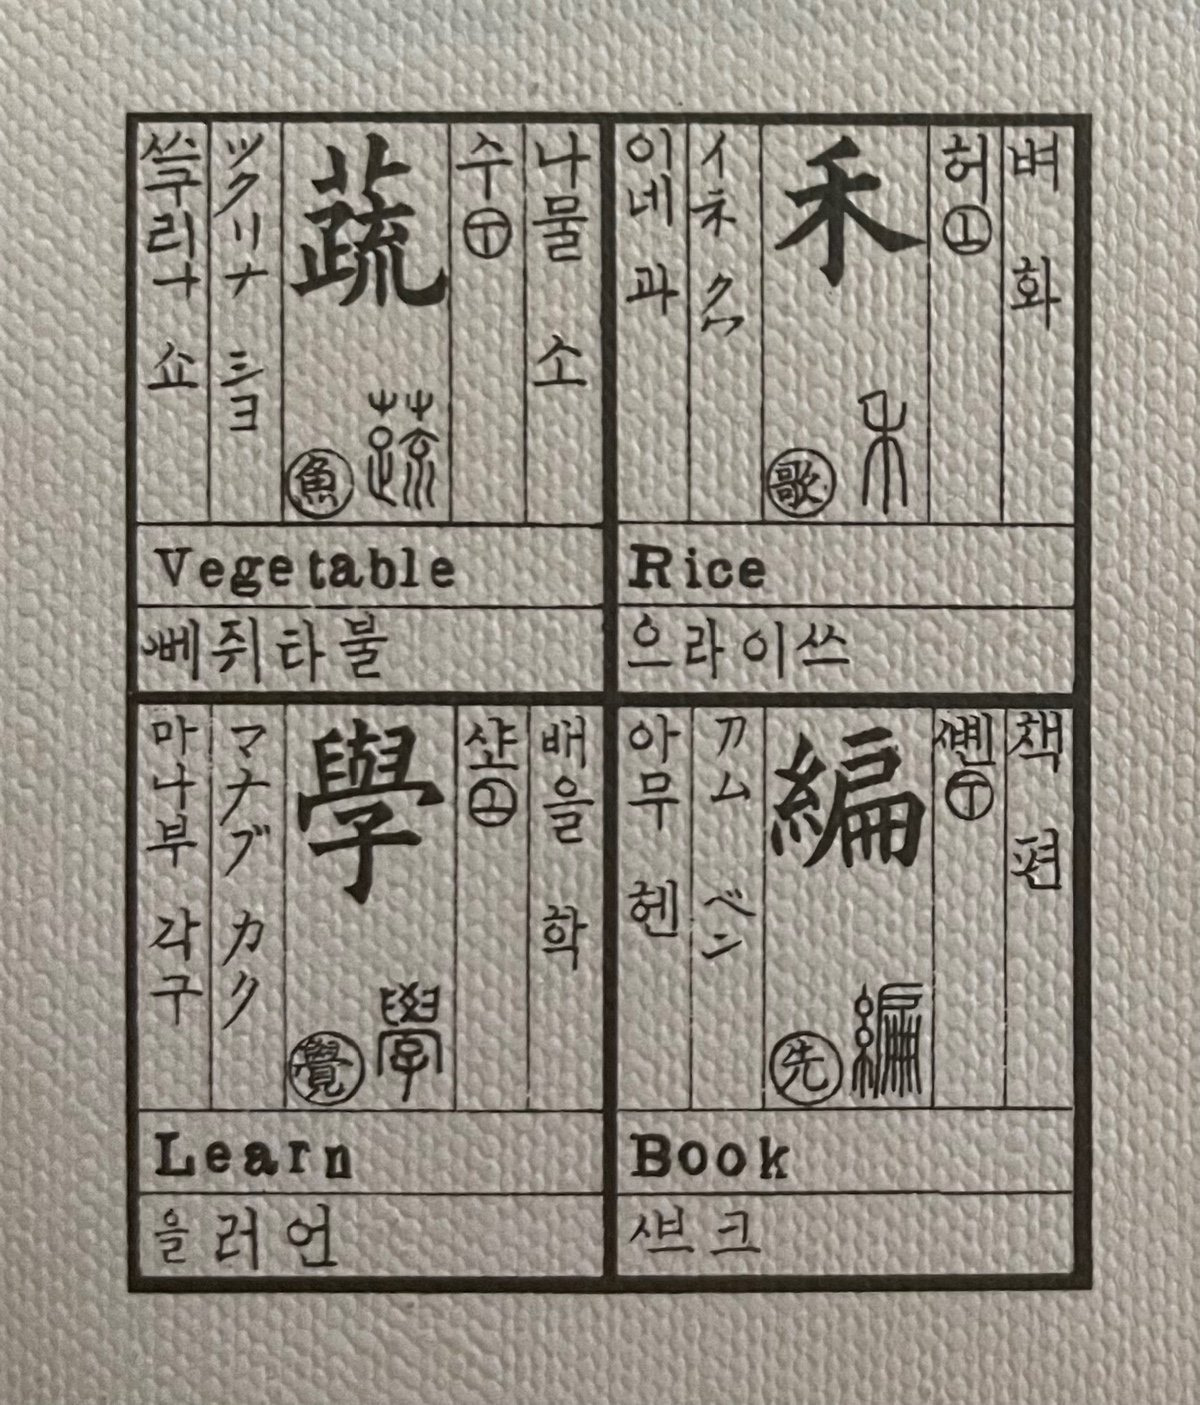 벼 화
허 丄
禾
歌
禾
イネ クハ
이네 과
Rice
으라이쓰
나물 소
수 丅
蔬
魚
蔬
ツクリナ ショ
쓰구리나 쇼
Vegetable
쥐타불
책 편
ᄲᅧᆫ 丅
編
先
編
アム ヘン
아무 헨
Book
ᄲᅳ크
배을 학
丄
學
覺
學
マナブ カク
마나부 각구
Learn
을러언